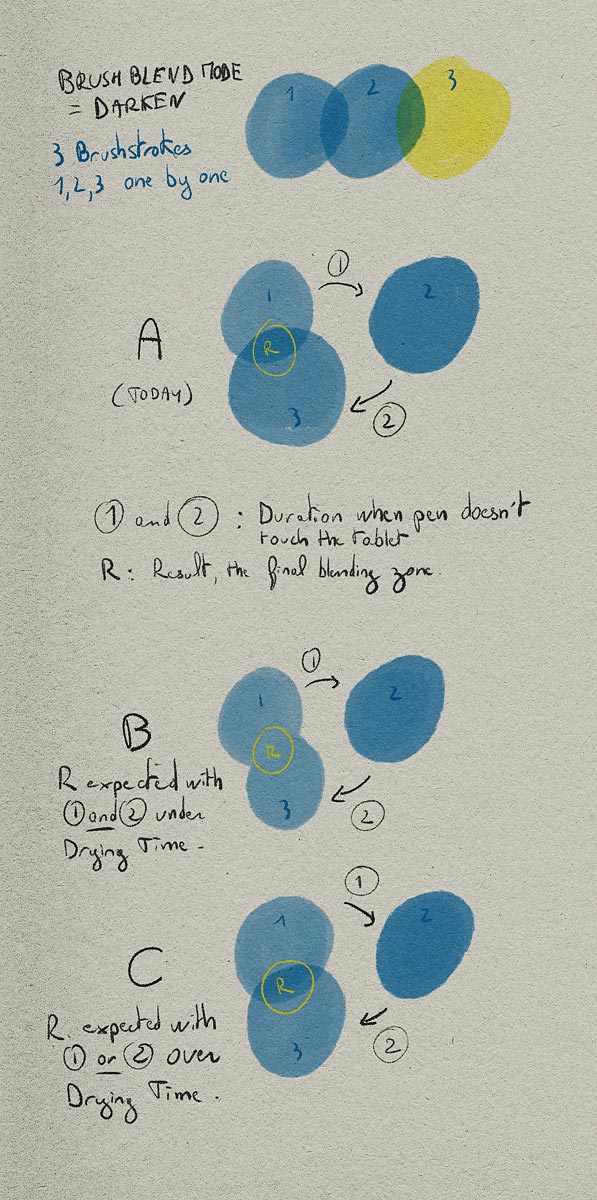 BRUSH BLEND MODE
= DARKEN
3 Brushstrokes
1,2,3 one by one
1 2 3
1
1 2
A
R
(TODAY)
3 2
1 and 2 : Duration when pen doesn't
touch the tablet
R: Result, the final blending zone.
1
1 2
B
R
R expected with
1 and 2 under
3 2
Drying Time -
1
1 2
C
R
R. expected with
1 or 2 over
3 2
Drying Time .